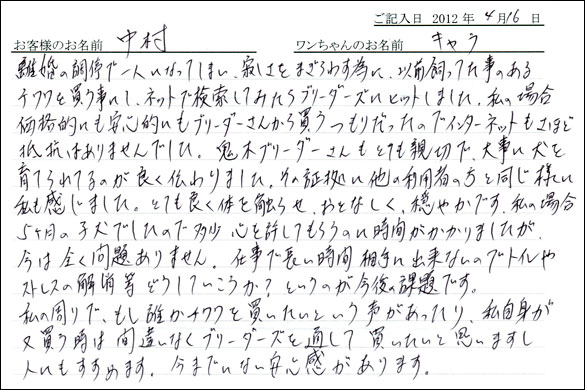 ご記入日 2012 年 4 月 16 日
お客様のお名前 中村 ワンちゃんのお名前 キャラ
離婚の調停で一人になってしまい、寂しさをまぎらわす為に、以前飼ってた事のある
チワワを買う事にし、ネットで検索してみたらブリーダーズにヒットしました。私の場合
価格的にも安心的にもブリーダーさんから買うつもりだったのでインターネットもさほど
抵抗はありませんでした。鬼木ブリーダーさんもとても親切で、大事に犬を
育てられてるのが良く伝わりました。その証拠に他の利用者の方と同じ様に
私も感じました。とても良く体を触らせ、おとなしく、穏やかです。私の場合
5ヶ月の子犬でしたので多少 心を許してもらうのに時間がかかりましたが、
今は全く問題ありません。仕事で長い時間 相手に出来ないのでトイレや
ストレスの解消等どうしていこうか?というのが今後の課題です。
私の周りで、もし誰かチワワを買いたいという声があったり、私自身が
又買う時は間違いなくブリーダーズを通して買いたいと思いますし
人にもすすめます。今までにない安心感があります。